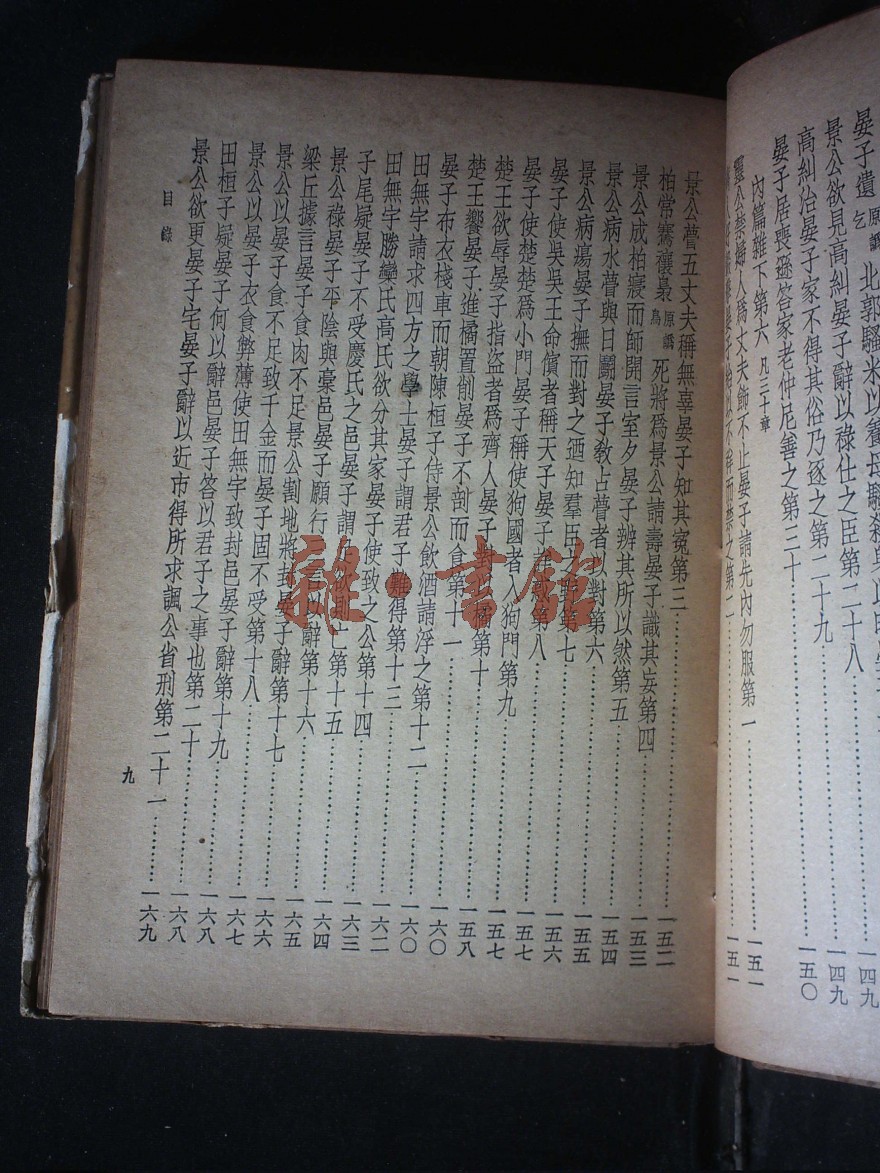 晏子遺 原譌乞 北郭騷米以養母騷殺身以明 一四九
景公欲見高糾晏子辭以祿仕之臣第二十八 一四九
高糾治晏子家不得其俗乃逐之第二十九 一四九
晏子居喪遜答家老仲尼善之第三十 一五〇
內篇雜下第六 凡三十章
靈公禁婦人爲丈夫飾不止晏子請先內勿服第一 一五一
而禁之第二 一五一
景公瞢五丈夫稱無辜晏子知其冤第三 一五二
柏常騫禳梟 原譌鳥 死將爲景公請壽晏子識其妄第四 一五三
景公成柏寢而師開言室夕晏子辨其所以然第五 一五四
景公病水瞢與日鬬晏子敎占瞢者以對第六 一五五
景公病瘍晏子撫而對之迺知羣臣之野第七 一五六
晏子使吳吳王命儐者稱天子晏子詳惑第八 一五七
晏子使楚楚爲小門晏子稱使狗國者入狗門第九 一五七
楚王欲辱晏子指盜者爲齊人晏子對以橘第十 一五八
楚王饗晏子進橘置削晏子不剖而食第十一
晏子布衣棧車而朝陳桓子侍景公飲酒請浮之第十二 一六〇
田無宇請求四方之學士晏子謂君子難得第十三 一六〇
田無宇勝欒氏高氏欲分其家晏子使致之公第十四 一六二
子尾疑晏子不受慶氏之邑晏子謂足欲則亡第十五 一六三
景公祿晏子平陰與槀邑晏子願行三言以辭第十六 一六四
梁丘據言晏子食肉不足景公割地將封晏子辭第十七 一六五
景公以晏子食不足致千金而晏子固不受第十八 一六六
景公以晏子衣食弊薄使田無宇致封邑晏子辭第十九 一六七
田桓子疑晏子何以辭邑晏子答以君子之事也第二十 一六八
景公欲更晏子宅晏子辭以近市得所求諷公省刑第二十一 一六八
一六九
目錄
九
雜·書館